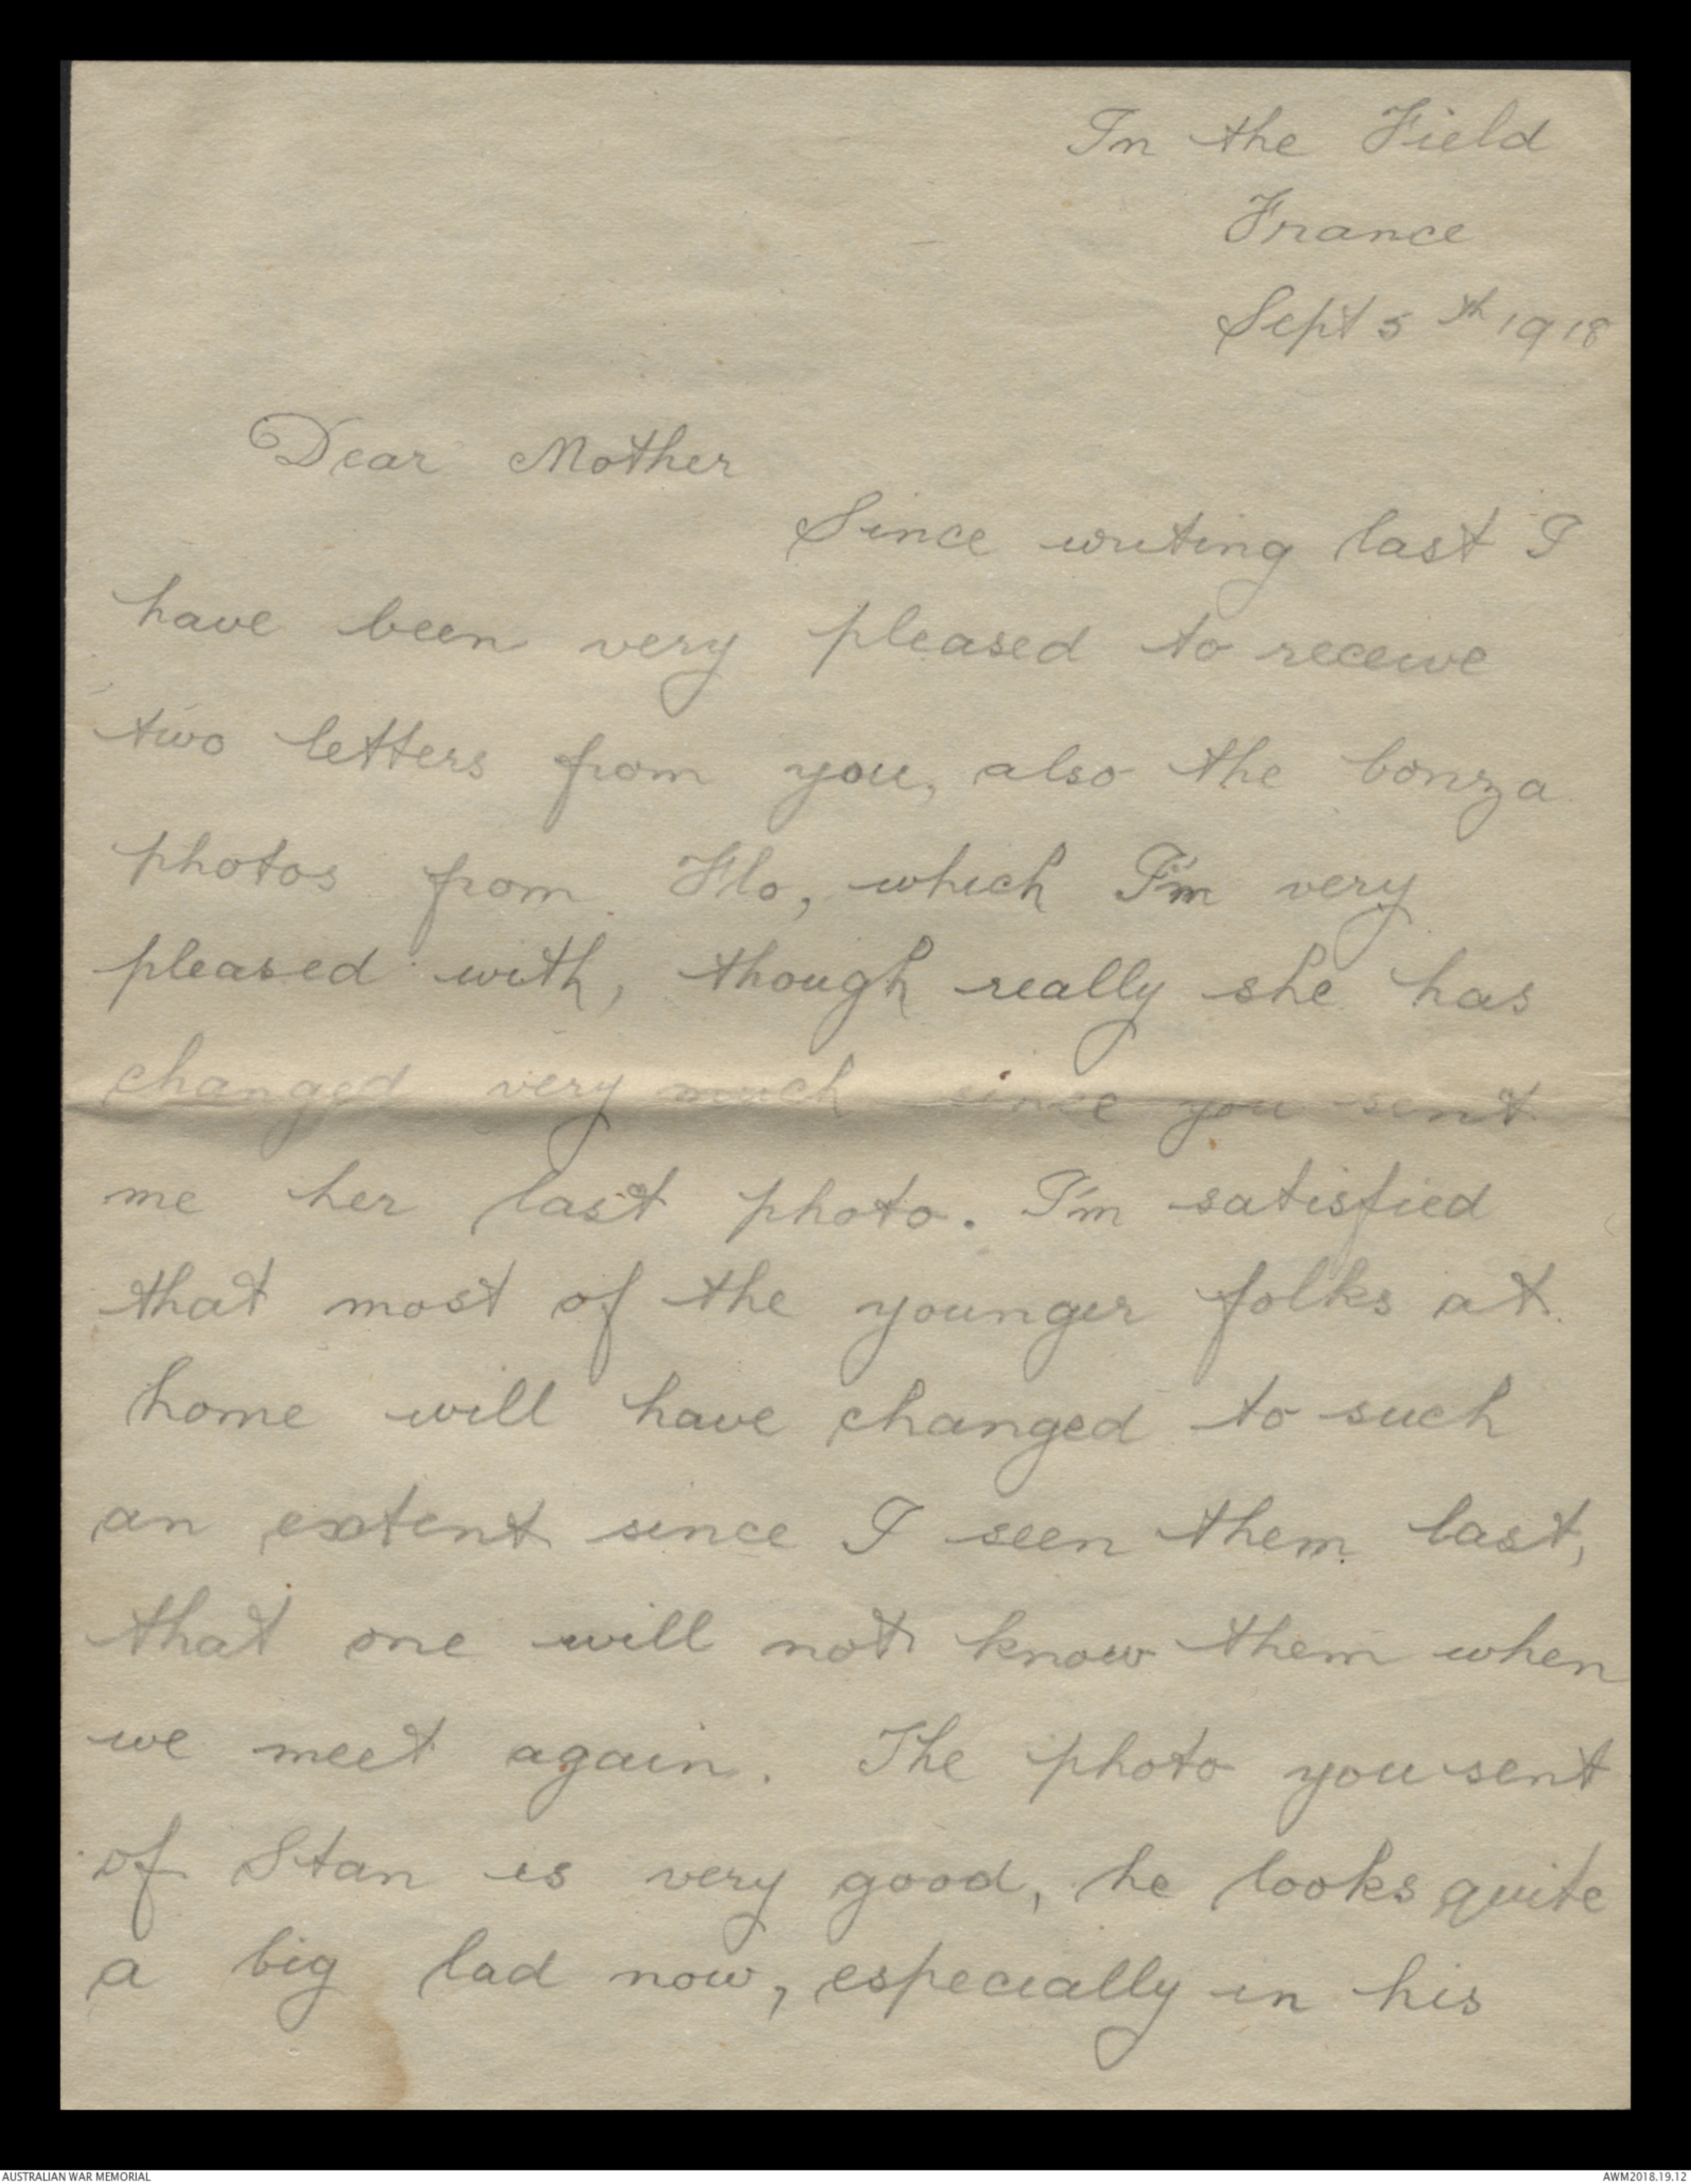 In the Field
France
Sept 5th 1918
Dear Mother
Since writing last I
have been very pleased to receive
two letters from you, also the bonza
photos from Flo, which I'm very
pleased with, though really she has
changed very much since you sent
me her last photo. I'm satisfied
that most of the younger folks at
home will have changed to such
an extent since I seen them last,
that one will not know them when
we meet again. The photo you sent
of Stan is very good, he looks quite
a big lad now, especially in his
AUSTRALIAN WAR MEMORIAL AWM2018.19.12